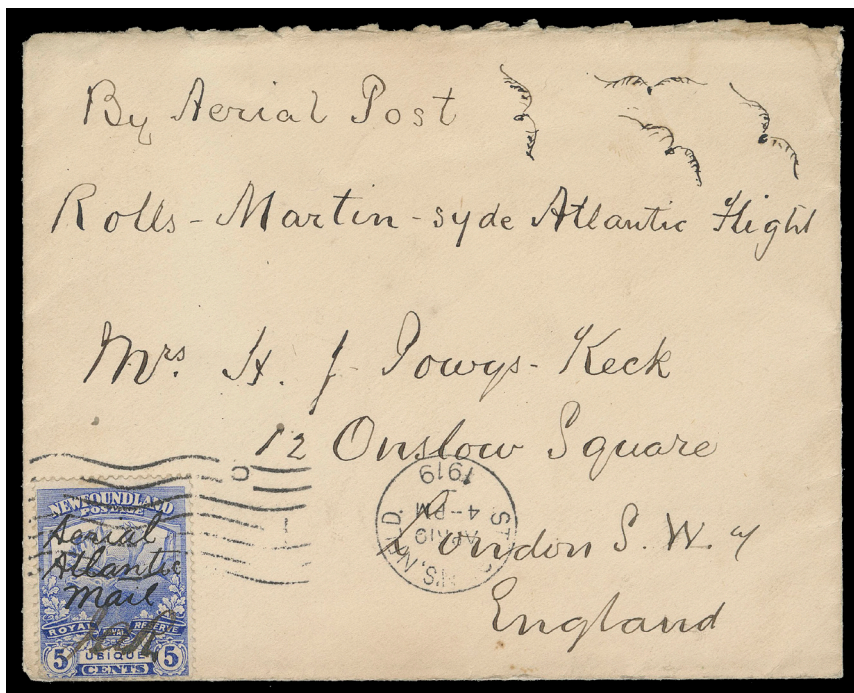 By Aerial Post
Rolls-Martin-syde Atlantic Flight
Mrs. H. J. Powys-Keck
12 Onslow Square
London S.W.7
England
1919
4-PM
AP 10
ST. 'S, NFLD.
NEWFOUNDLAND
POSTAGE
Aerial
Atlantic
Mail
ROYAL NAVAL RESERVE
UBIQUE
5 CENTS 5